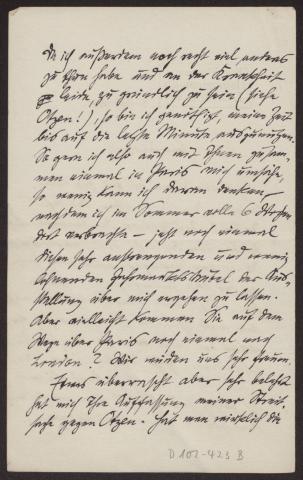 Da ich außerdem noch recht viel anderes
zu thun habe und an der Krankheit
leide, zu gründlich zu sein (siehe
Otzen!), so bin ich genöthigt, meine Zeit
bis auf die letzte Minute auszunutzen.
So gern ich also auch mit Ihnen zusam-
men einmal in Paris mich umsähe,
so wenig kann ich daran denken,
nachdem ich im Sommer volle 6 Wochen
dort verbrachte – jetzt noch einmal
diesen sehr anstrengenden und wenig
lohnenden der Aus-
stellung über mich ergehen zu lassen.
Aber vielleicht kommen Sie auf dem
Wege über Paris noch einmal nach
London? Wir würden uns sehr freuen.
Etwas überrascht aber sehr belehrt
hat mich Ihre Auffassung meiner Streit-
sache gegen Otzen. Hat man wirklich die
D 102-423 B